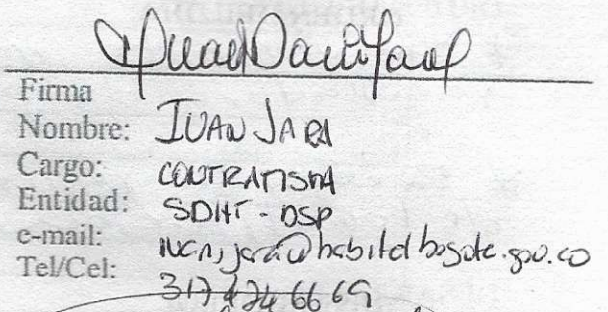 Firma
Nombre: IUAN JARA
Cargo: CONTRATISTA
Entidad: SDHT - DSP
e-mail: @habitatbogota.gov.co
Tel/Cel: 317 424 66 69